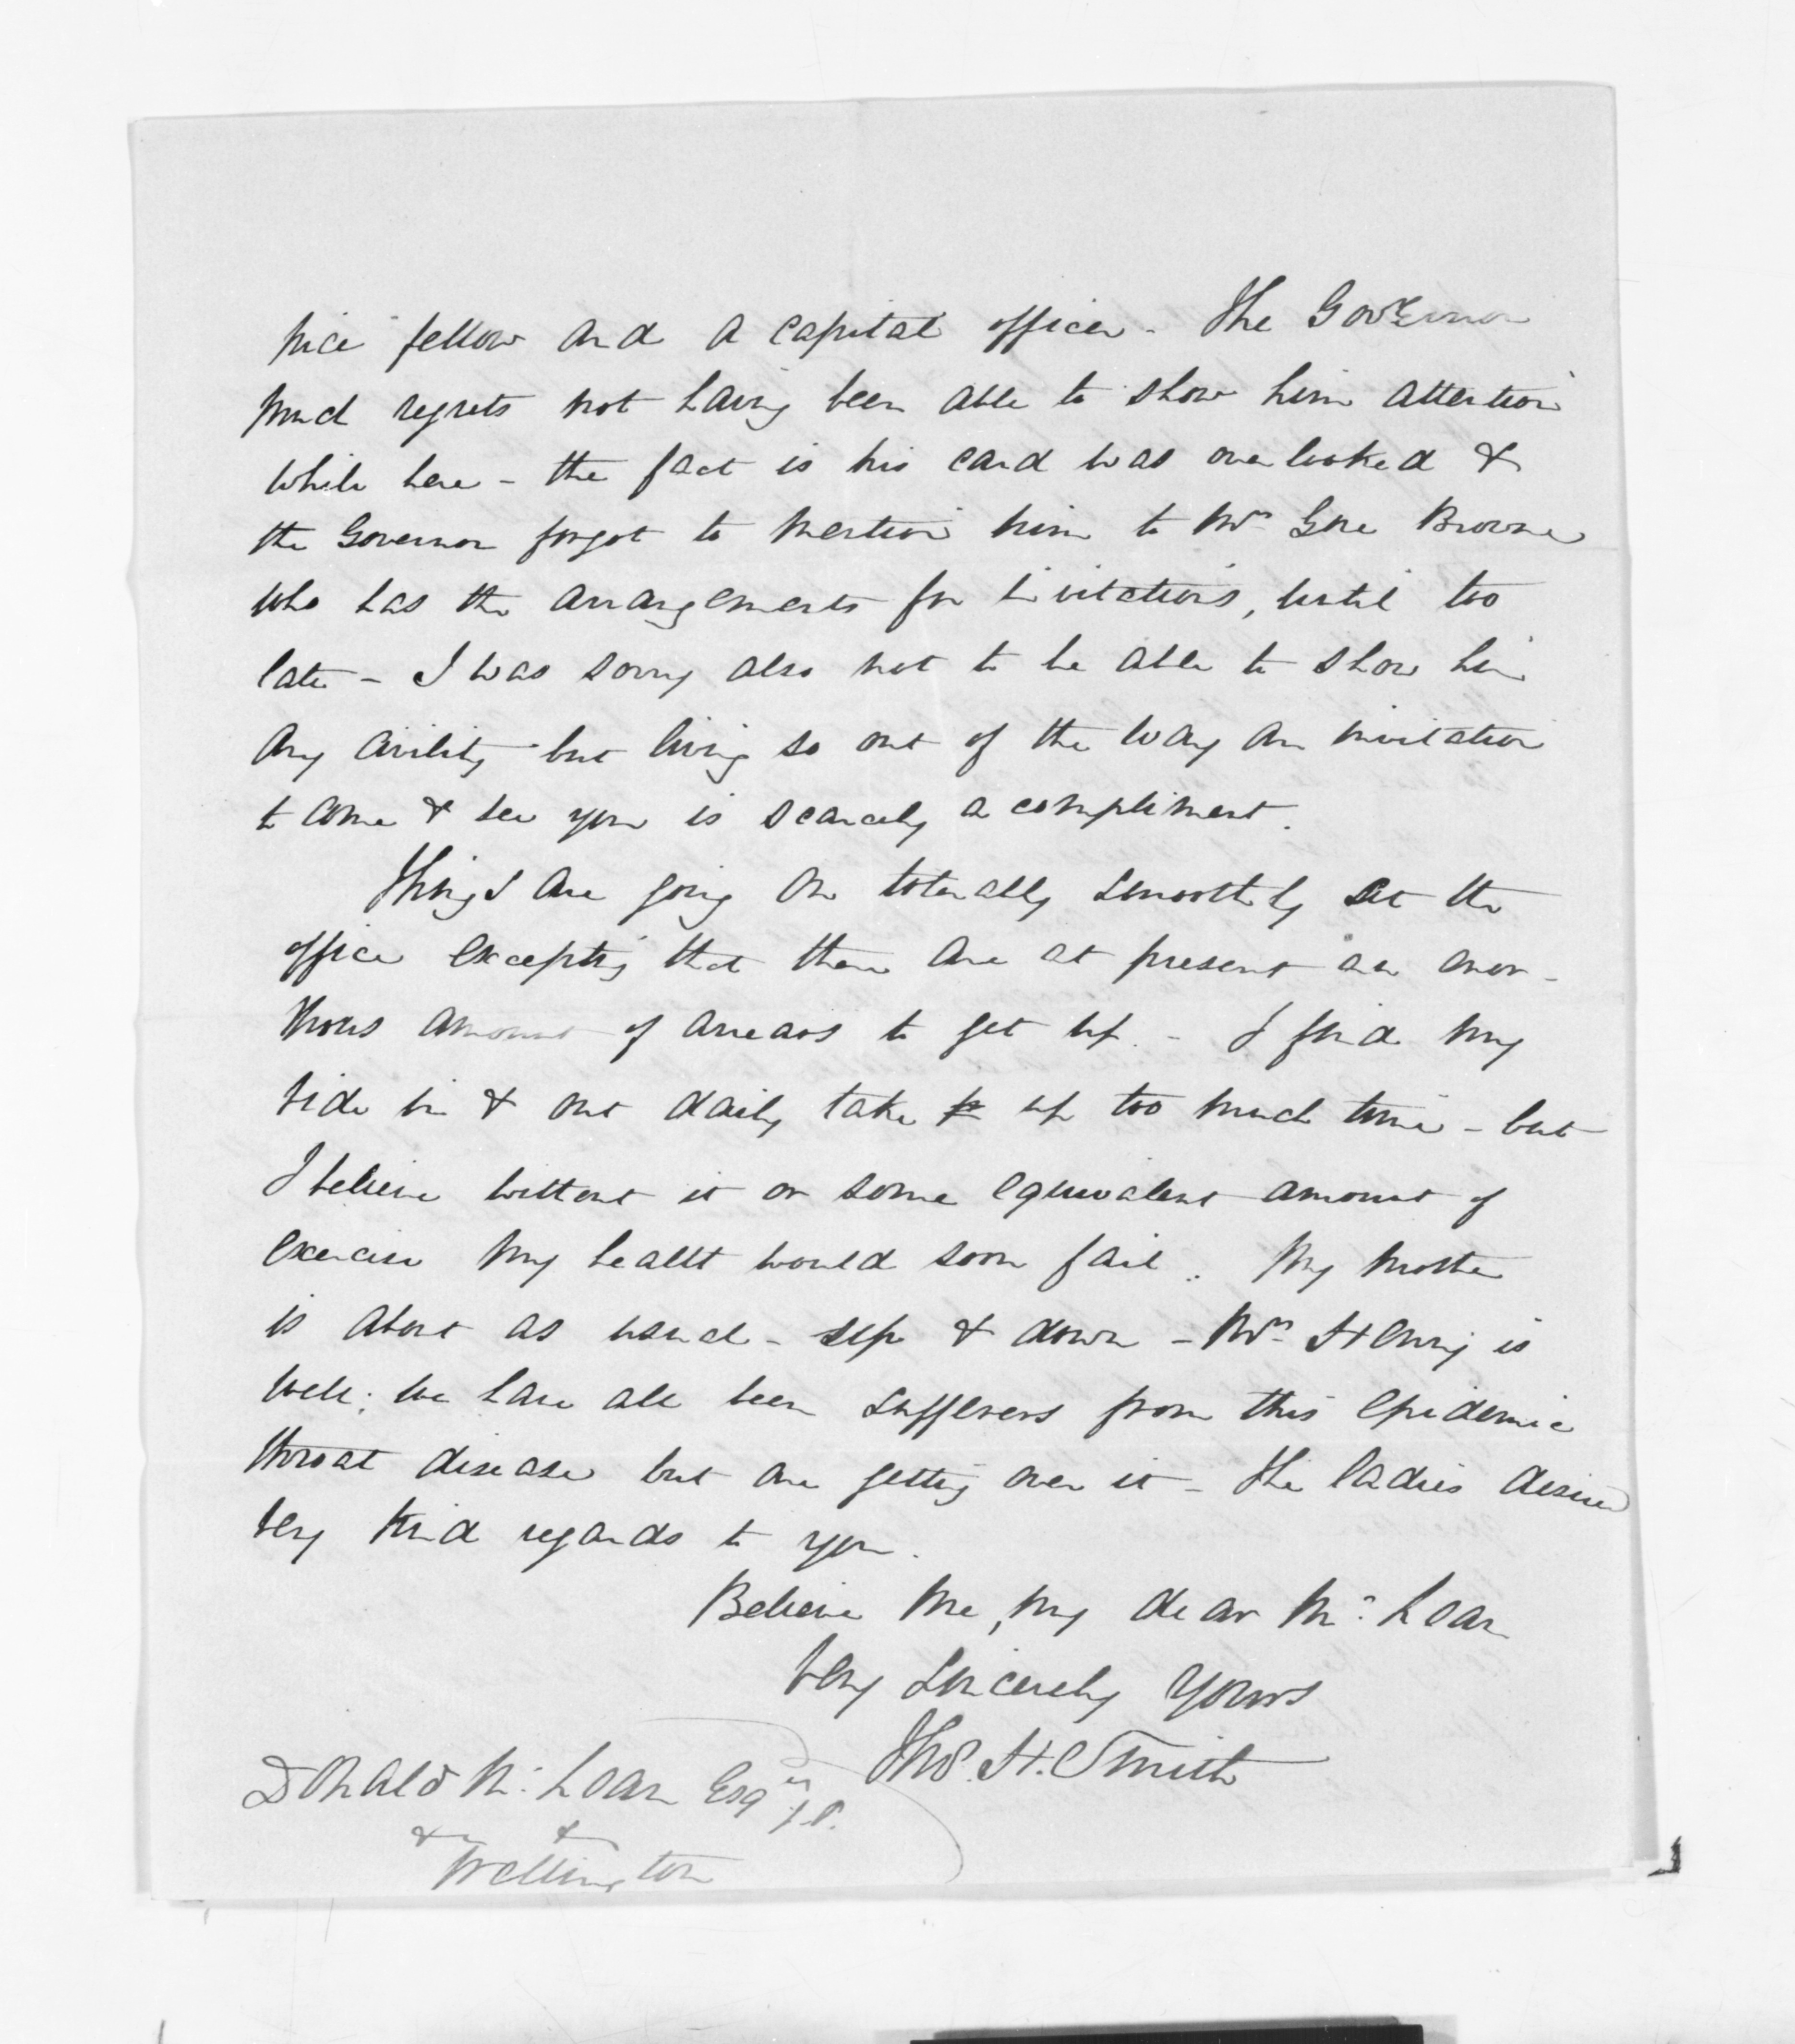 nice fellow and a capital officer - The Governor
much regrets not having been able to show him attention
while here - the fact is his card was overlooked &
the Governor forgot to mention him to Mrs Gore Browne
who has the arrangements for invitations, until too
late - I was sorry also not to be able to show him
any civility but living so out of the way an invitation
to come & see you is scarcely a compliment.
Things are going on tolerably smoothly at the
office excepting that there are at present an enor-
mous amount of arrears to get up. - I find my
ride in & out daily take up too much time - but
I believe without it or some equivalent amount of
exercise my health would soon fail. My mother
is about as usual - up & down - Mrs Henry is
well; we have all been sufferers from this epidemic
throat disease but are getting over it - The ladies desire
very kind regards to you.
Believe me, my dear Mc Lean
Very sincerely yours
Thos. H. Smith
Donald Mc Lean Esqre J.P.
& &
Wellington